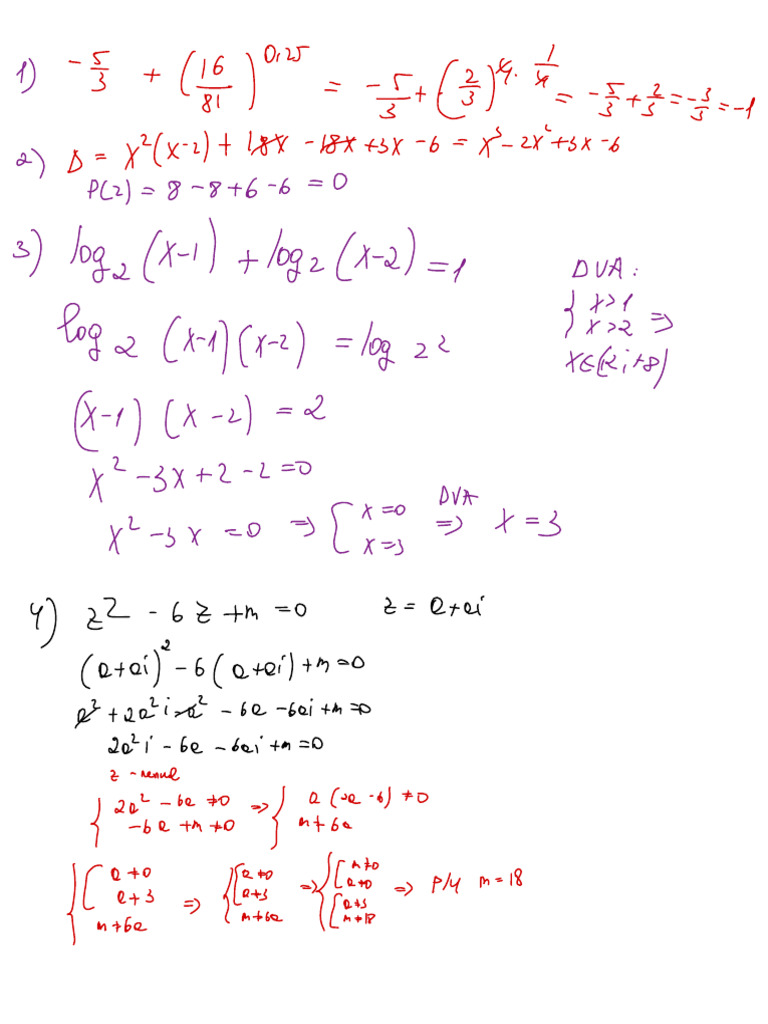 1) -5/3 + (16/81)^0,25 = -5/3 + (2/3)^4·1/4 = -5/3 + 2/3 = -3/3 = -1
2) D = x²(x-2) + 18x - 18x + 3x - 6 = x³ - 2x² + 3x - 6
P(2) = 8 - 8 + 6 - 6 = 0
3) log₂(x-1) + log₂(x-2) = 1
DVA:
{ x>1
x>2 ⇒
x∈(2;+∞)
log₂(x-1)(x-2) = log₂2
(x-1)(x-2) = 2
x² - 3x + 2 - 2 = 0
x² - 3x = 0 ⇒ [ x=0 x=3 DVA ⇒ x = 3
4) z² - 6z + m = 0 z = a+ai
(a+ai)² - 6(a+ai) + m = 0
a² + 2a²i - a² - 6a - 6ai + m = 0
2a²i - 6a - 6ai + m = 0
z -
{ 2a² - 6a ≠ 0 ⇒ { a(2a-6) ≠ 0
-6a + m ≠ 0 m ≠ 6a
{ [ a≠0 a≠3 m≠6a ⇒ { [ a≠0 a≠3 m≠6a ⇒ { [ m≠0 a≠0 [ a≠3 m≠18 ⇒ P/U m = 18